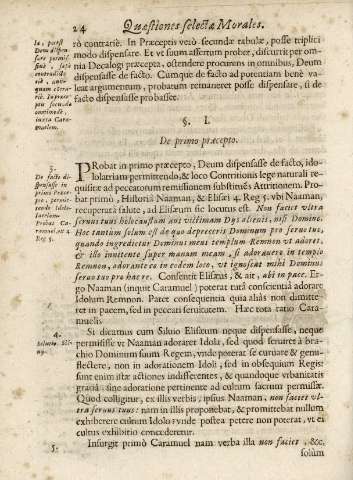 24 Quæstiones selectæ Morales.
rò contrariè. In Præceptis verò secundæ tabulæ, posse tripliciter
modo dispensare. Et vt suum assertum prober, discurrit per omnia
Decalogi præcepta, ostendere procurans in omnibus, Deum
dispensasse de facto. Cumque de facto ad potentiam benè valeat
argumentum, probatum remaneret posse dispensare, si de
facto dispensasse probasset.
§. I.
De primo præcepto.
3.
De facto dispensasse
in primo Præcepto,
permittendo
Idololatriam
Probat Caramuel.
ex 4.
Reg. 5.
PRobat in primo præcepto, Deum dispensasse de facto, idololatriam
permittendo, & loco Contritionis lege naturali requisitæ
ad peccatorum remissionem substituēs Attritionem. Probat
primò, Historiâ Naaman, & Elisæi 4. Reg. 5. vbi Naaman,
recuperatâ salute, ad Elisæum sic locutus est. Non faciet vltra
seruus tuus holocaustum aut victimam Dys alienis, nisi Domino.
Hoc tantum solum est de quo depreceris Dominum pro seruo tuo,
quando ingredietur Dominus meus templum Remnon vt adoret,
& illo innitente super manum meam, si adorauero in templo
Remnon, adorante eo in eodem loco, vt ignoscat mihi Dominus
seruo tuo pro hac re. Consensit Elisæus, & ait, abi in pace. Ergo
Naaman (inquit Caramuel) poterat tutâ conscientiâ adorare
Idolum Remnon. Patet consequentia quia aliàs non dimitteret
in pacem, sed in peccati seruitutem. Hæc tota ratio Caramuelis.
4.
Si dicamus cum Siluio Elisæum neque dispensasse, neque
permisisse vt Naaman adoraret Idola, sed quod seruiret à brachio
Dominum suum Regem, vnde poterat se curuare & genuflectere,
non in adorationem Idoli, sed in obsequium Regis:
sunt enim istæ actiones indifferentes, & quandoque vrbanitatis
gratiâ sine adoratione pertinente ad cultum sacrum permissæ.
Quod colligitur, ex illis verbis, ipsius Naaman, non faciet vltra
seruus tuus: nam in illis proponebat, & promittebat nullum
exhibere cultum Idolo: vnde postea petere non poterat, vt ei
cultus exhibitio concederetur.
5.
Insurgit primò Caramuel nam verba illa non faciet, &c,
solum